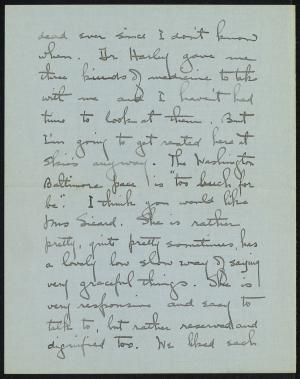 dead ever since I don't know
when. Dr Harley gave me
three kinds of medicine to take
with me and I haven't had
time to look at them. But
I'm going to get rested here at
anyway. The Washington
Baltimore pace is "too much for
be". I think you would like
Mrs Sicard. She is rather
pretty, quite pretty sometimes, has
a lovely low slow way of saying
very graceful things. She is
very responsive and easy to
talk to, but rather reserved and
dignified too. We liked each